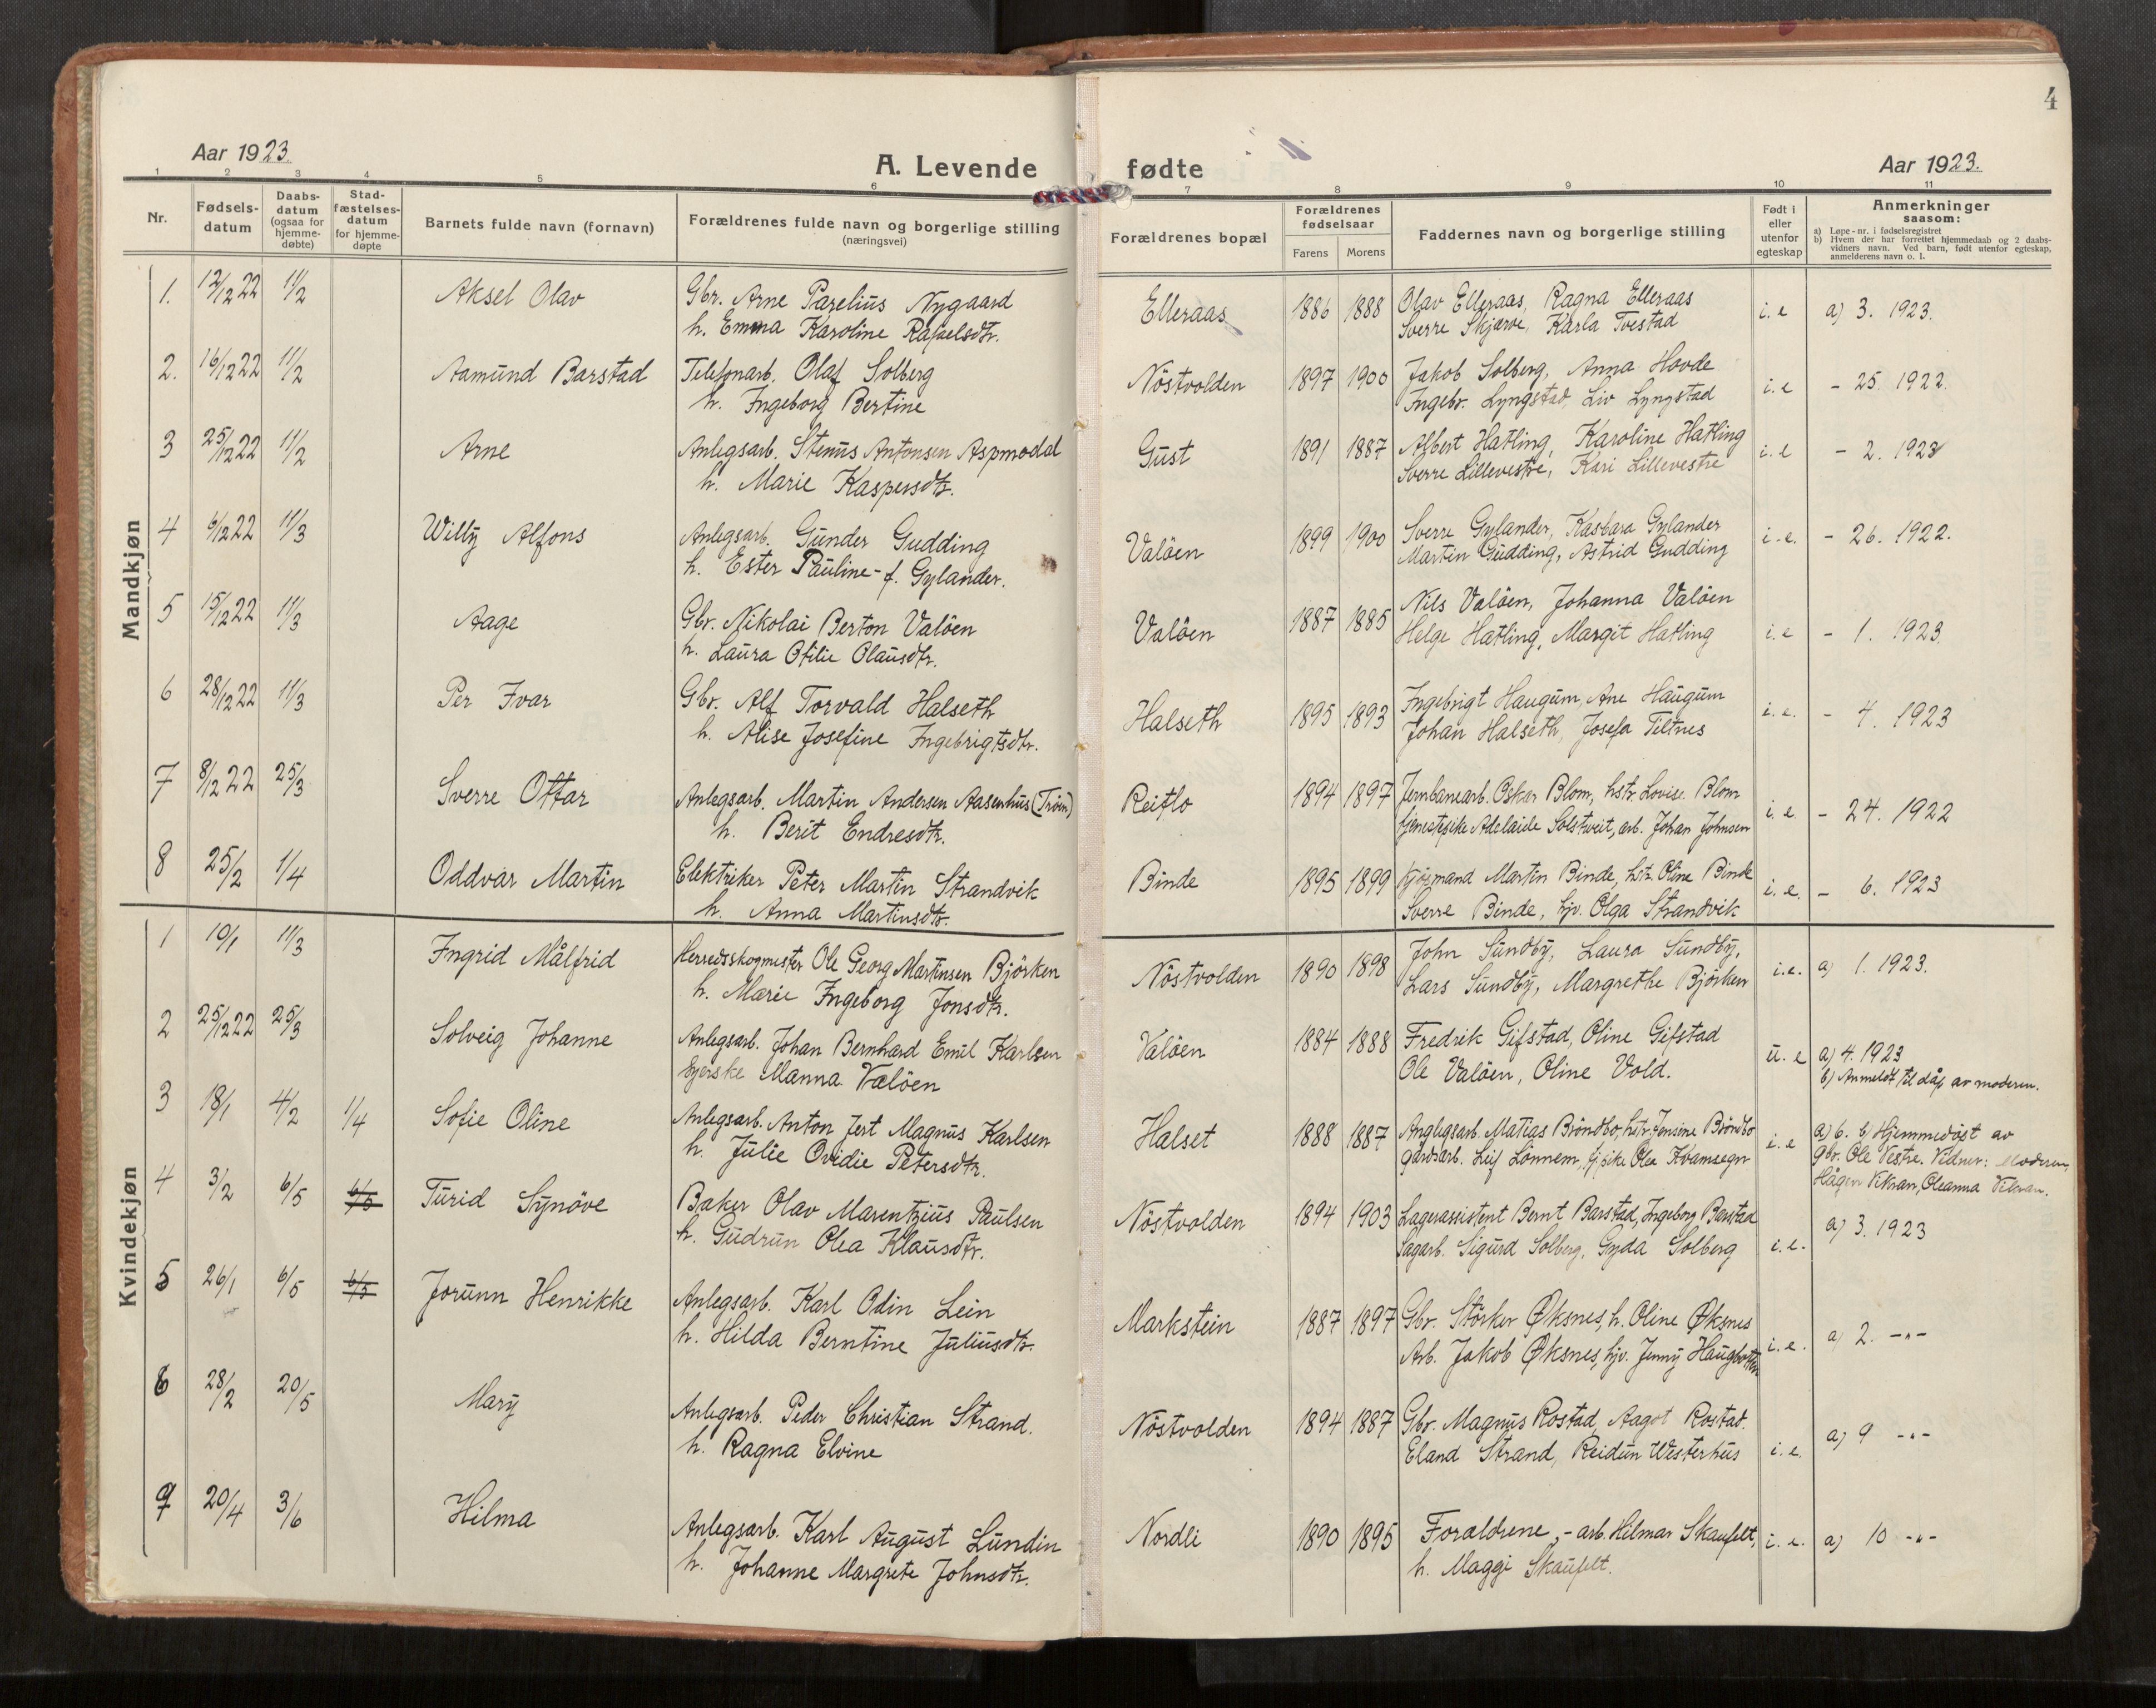 4
Aar 1923.
A. Levende fødte
Aar 1923.
1 2 3 4 5 6 7 8 9 10 11
Nr.
Fødsels-datum
Daabs-datum (ogsaa for hjemme-døbte)
Stad-fæstelses-datum for hjemme-døpte
Barnets fulde navn (fornavn)
Forældrenes fulde navn og borgerlige stilling
(næringsvei)
Forældrenes bopæl
Forældrenes fødselsaar
Farens Morens
Faddernes navn og borgerlige stilling
Født i eller utenfor egteskap
Anmerkninger
saasom:
a) Løpe-nr. i fødselsregistret
b) Hvem der har forrettet hjemmedaab og 2 daabs-
vidners navn. Ved barn, født utenfor egteskap,
anmelderens navn o. l.
Mandkjøn
1. 12/12 22 11/2 Aksel Olav Gbr. Arne Parelius Nygaard Elleraas 1886 1888 Olav Elleraas, Ragna Elleraas i.e a) 3. 1923.
h. Emma Karoline Rafaelsdtr. Sverre Skjærve, Karla Tvestad
2. 16/12 22 11/2 Aamund Barstad Telefonarb. Olaf Solberg Nöstvolden 1897 1900 Jakob Solberg, Anna Hovde i.e - 25. 1922.
h. Ingeborg Bertine Ingebr. Lyngstad, Liv Lyngstad
3 25/12 22 11/2 Arne Anlegsarb. Stenus Antonsen Aspmodal Gust 1891 1887 Albert Hatling, Karoline Hatling i.e - 2. 1923
h. Marie Kaspersdtr. Sverre Lillevestre, Kari Lillevestre
4 6/12 22 11/3 Willy Alfons Anlegsarb. Gunder Gudding Valöen 1899 1900 Sverre Gylander, Kasbara Gylander i.e. - 26. 1922.
h. Ester Pauline - f. Gylander. Martin Gudding, Astrid Gudding
5 15/12 22 11/3 Aage Gbr. Nikolai Berton Valöen Valöen 1887 1885 Nils Valöen, Johanna Valöen i.e - 1. 1923.
h. Laura Otilie Olausdtr. Helge Hatling, Margit Hatling
6 28/12 22 11/3 Per Ivar Gbr. Alf Torvald Halseth Halseth 1895 1893 Ingebrigt Haugum, Ane Haugum i.e. - 4. 1923
h. Alise Josefine Ingebrigtsdtr. Johan Halseth, Josefa Tiltnes
7 8/12 22 25/3 Sverre Ottar Anlegsarb. Martin Andersen Aasenhus (Tröen) Reitlo 1894 1897 Jernbanearb. Oskar Blom, hstr. Lovise Blom i.e. - 24. 1922
h. Berit Endresdtr. tjenestepike Adelaide Solstveit, arb. Johan Johnsen
8 25/2 1/4 Oddvar Martin Elektriker Peter Martin Strandvik Binde 1895 1899 Martin Binde, hstr. Oline Binde i.e. - 6. 1923
h. Anna Martinsdtr. Sverre Binde, hjv. Olga Strandvik
Kvindekjøn
1 10/1 11/3 Ingrid Målfrid Herredsskogmester Ole Georg Martinsen Björken Nöstvolden 1890 1898 John Sundby, Laura Sundby, i.e. a) 1. 1923.
h. Marie Ingeborg Jonsdtr. Lars Sundby, Margrethe Björken
2 25/12 22 25/3 Solveig Johanne Anlegsarb. Johan Bernhard Emil Karlsen Valöen 1884 1888 Fredrik Gifstad, Oline Gifstad u.e a) 4. 1923
Syerske Manna Valöen Ole Valöen, Oline Vold. b) Anmeldt til dåp av moderen.
3 18/1 4/2 1/4 Sofie Oline Anlegsarb. Anton Jert Magnus Karlsen Halset 1888 1887 Anglegsarb. Matias Bröndbo, hstr. Jensine Bröndbo i.e a) 6. b) Hjemmedöpt av
h. Julie Ovidie Petersdtr. gårdsarb. Leif Lönnem, tj.pike Olea Kvamsegn gbr. Ole Vestre. Vidner: Moderen,
Hågen Vikran, Oleanna Vikran.
4 3/2 6/5 6/5 Turid Synöve Baker Olav Marentzius Paulsen Nöstvolden 1894 1903 Lagerassistent Bernt Barstad, Ingeborg Barstad i.e. a) 3. 1923
h. Gudrun Olea Klausdtr. Sagarb. Sigurd Solberg, Gyda Solberg
5 26/1 6/5 6/5 Jorunn Henrikke Anlegsarb. Karl Odin Lein Markstein 1887 1897 Gbr. Störker Øksnes, h. Oline Øksnes i.e. a) 2. -"-
h. Hilda Berntine Juliusdtr. Arb. Jakob Øksnes, hjv. Jenny
6 28/2 20/5 Mary Anlegsarb. Peder Christian Strand. Nöstvolden 1894 1887 Gbr. Magnus Rostad, Aagot Rostad. i.e. a) 9 -"-
h. Ragna Elvine Eland Strand, Reidun Westerhus
7 20/4 3/6 Hilma Anlegsarb. Karl August Lundin Nordli 1890 1895 Forældrene, - arb. Hilmar Skaufelt, i.e. a) 10 -"-
h. Johanne Margrete Johnsdtr. h. Maggi Skaufelt.